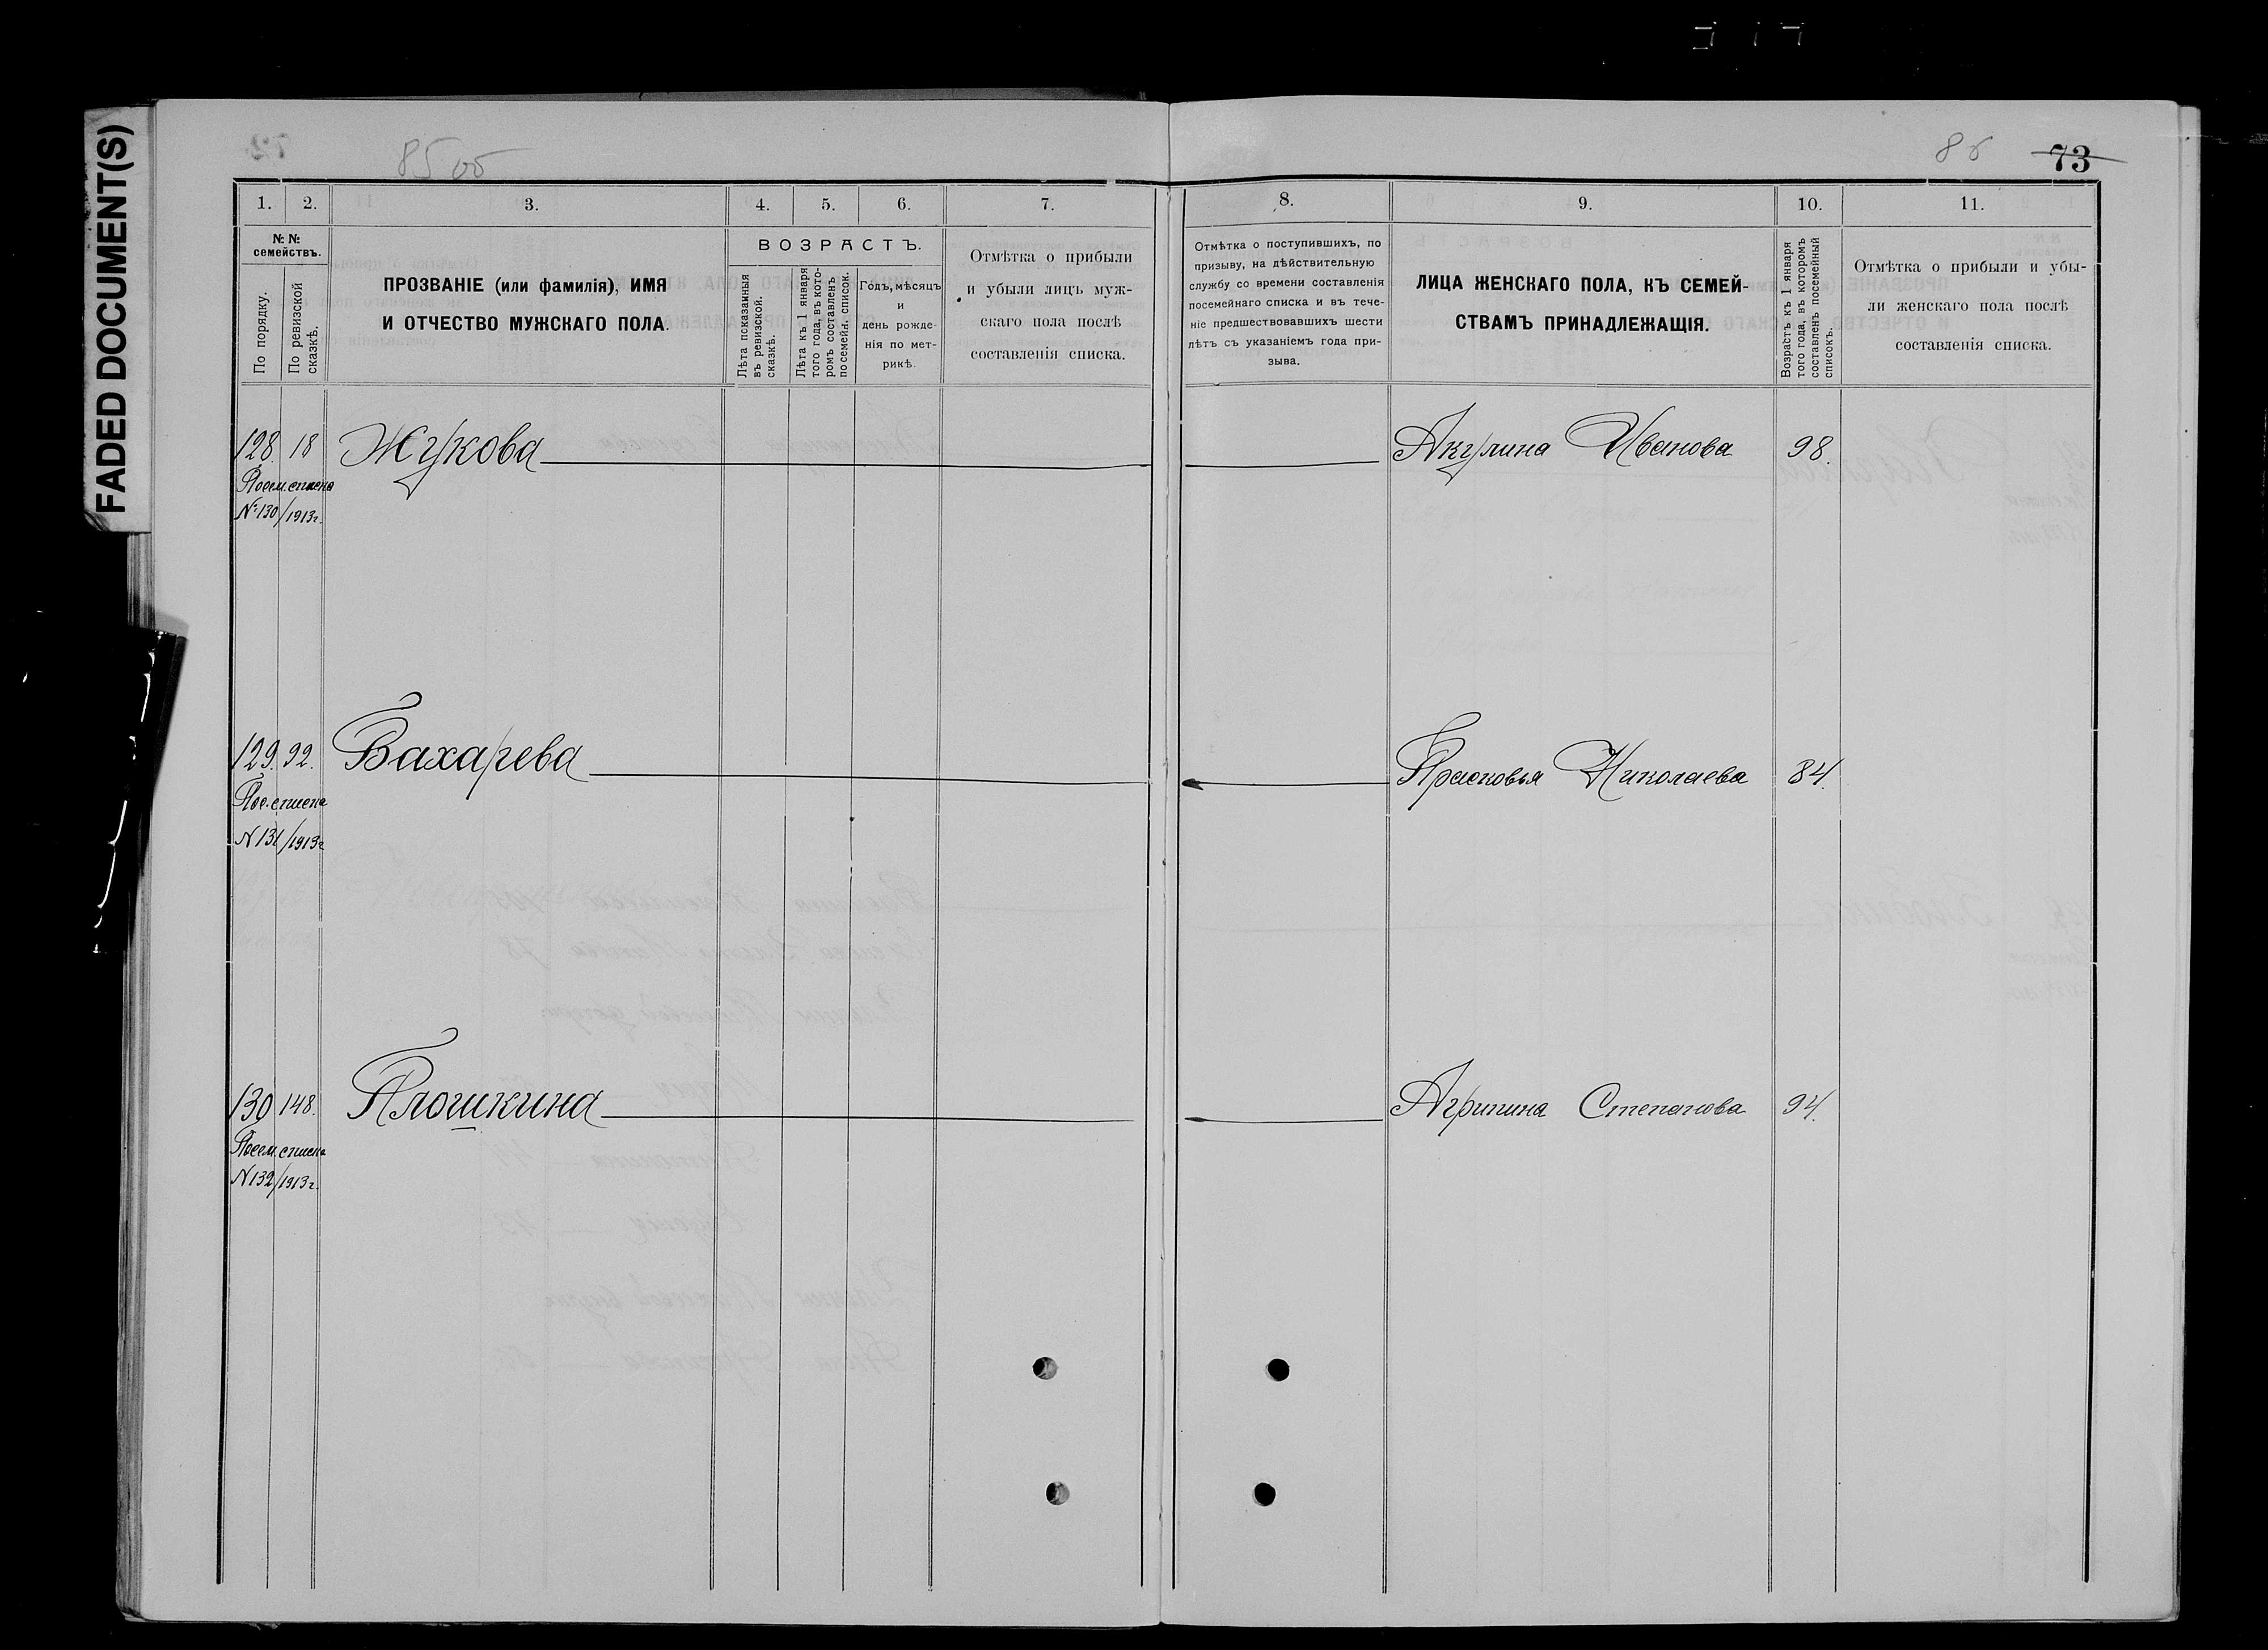 FADED DOCUMENT(S)
85 об
86 73
1. 2. 3. 4. 5. 6. 7.
№ №
семействъ.
По порядку.
По ревизской
сказкѣ.
ПРОЗВАНІЕ (или фамилія), ИМЯ
И ОТЧЕСТВО МУЖСКАГО ПОЛА.
ВОЗРАСТЪ.
Лѣта показанныя
въ ревизской.
сказкѣ.
Лѣта къ 1 января
того года, въ кото-
ромъ составленъ
посемейн. список.
Годъ, мѣсяцъ
и
день рожде-
нія по мет-
рикѣ.
Отмѣтка о прибыли
и убыли лицъ муж-
скаго пола послѣ
составленія списка.
8. 9. 10. 11.
Отмѣтка о поступившихъ, по
призыву, на дѣйствительную
службу со времени составленія
посемейнаго списка и въ тече-
ніе предшествовавшихъ шести
лѣтъ съ указаніемъ года при-
зыва.
ЛИЦА ЖЕНСКАГО ПОЛА, КЪ СЕМЕЙ-
СТВАМЪ ПРИНАДЛЕЖАЩІЯ.
Возрастъ къ 1 января
того года, въ которомъ
составленъ посемейный
списокъ.
Отмѣтка о прибыли и убы-
ли женскаго пола послѣ
составленія списка.
128. 18 Жукова Акулина Иванова 98.
Посем. списка
№ 130/1913г.
129. 92. Бахарева Прасковья Николаева 84.
Пос. списка
N 131/1913г
130 148. Плошкина Агрипина Степанова 94.
Посем. списка
N 132/1913г.